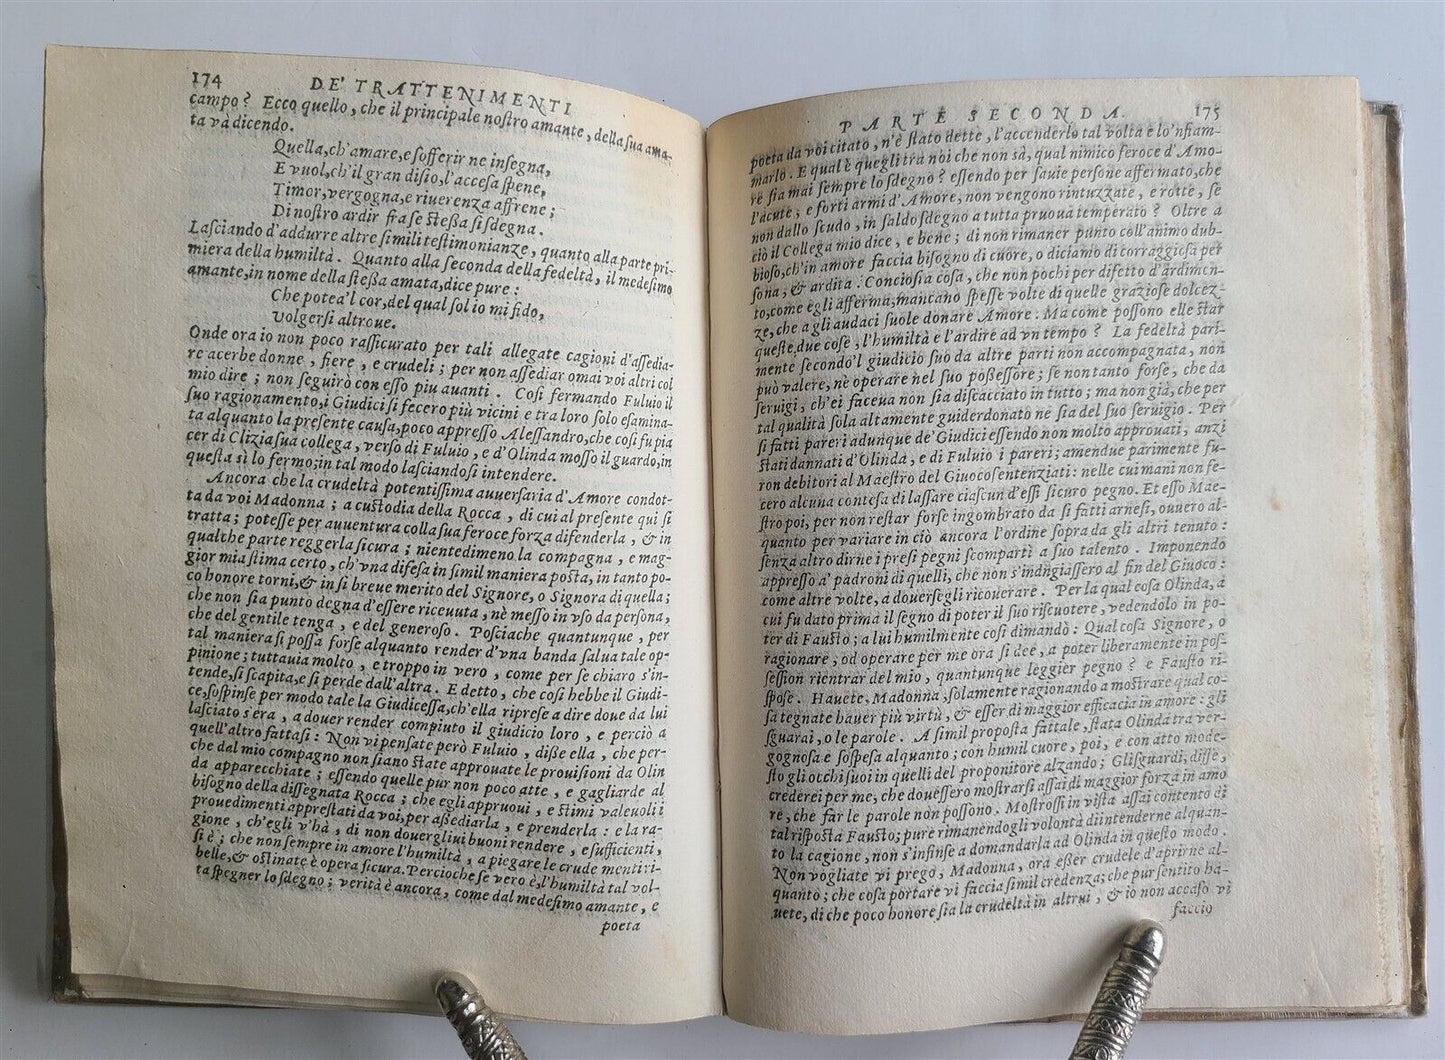 174 DE' TRATTENIMENTI
campo? Ecco quello, che il principale noſtro amante, della ſua ama-
ta và dicendo.
Quella, ch'amare, e ſofferir ne inſegna,
E vuol, ch'il gran diſio, l'acceſa ſpene,
Timor, vergogna, e riuerenza affrene;
Di noſtro ardir fra ſe ſteßa ſi ſdegna.
Laſciando d'addurre altre ſimili teſtimonianze, quanto alla parte pri-
miera della humiltà. Quanto alla ſeconda della fedeltà, il medeſimo
amante, in nome della ſteßa amata, dice pure:
Che potea'l cor, del qual ſol io mi fido,
Volgerſi altroue.
Onde ora io non poco raſſicurato per tali allegate cagioni d'aſſedia-
re acerbe donne, fiere, e crudeli; per non aſſediar omai voi altri col
mio dire; non ſeguirò con eſſo piu auanti. Coſi fermando Fuluio il
ſuo ragionamento, i Giudici ſi fecero più vicini e tra loro ſolo eſamina-
ta alquanto la preſente cauſa, poco appreſſo Aleſſandro, che coſi fu pia
cer di Clizia ſua collega, verſo di Fuluio, e d'Olinda moſſo il guardo, in
queſta ſi lo fermo; in tal modo laſciandoſi intendere.
Ancora che la crudeltà potentiſſima auuerſaria d'Amore condot-
ta da voi Madonna; a cuſtodia della Rocca, di cui al preſente qui ſi
tratta; poteſſe per auuentura colla ſua feroce forza difenderla, & in
qualche parte reggerla ſicura; nientedimeno la compagna, e mag-
gior mia ſtima certo, ch'vna difeſa in ſimil maniera poſta, in tanto po-
co honore torni, & in ſi breue merito del Signore, o Signora di quella;
che non ſia punto degna d'eſſere riceuuta, nè meſſo in vſo da perſona,
che del gentile tenga, e del generoſo. Poſciache quantunque, per
tal maniera ſi poſſa forſe alquanto render d'vna banda ſalua tale op-
pinione; tuttauia molto, e troppo in vero, come per ſe chiaro s'in-
tende, ſi ſcapita, e ſi perde dall'altra. E detto, che coſi hebbe il Giudi-
ce, ſoſpinſe per modo tale la Giudiceſſa, ch'ella ripreſe a dire doue da lui
laſciato s'era, a douer render compiuto il giudicio loro, e perciò a
quell'altro fattaſi: Non vi penſate però Fuluio, diße ella, che per-
che dal mio compagno non ſiano ſtate approuate le prouiſioni da Olin
da apparecchiate; eſſendo quelle pur non poco atte, e gagliarde al
biſogno della diſſegnata Rocca; che egli appruoui, e ſtimi valeuoli i
prouedimenti appreſtati da voi, per aßediarla, e prenderla: e la ra-
gione, ch'egli v'hà, di non douergliui buoni rendere, e ſufficienti,
ſi è; che non ſempre in amore l'humiltà, a piegare le crude menti ri-
belle, & oſtinate è opera ſicura. Percioche ſe vero è, l'humiltà tal vol-
ta ſpegner lo ſdegno; verità è ancora, come dal medeſimo amante, e
poeta
PARTE SECONDA. 175
poeta da voi citato, n'è ſtato dette, l'accenderlo tal volta e lo'nfiam-
marlo. E qual è quegli tra noi che non sà, qual nimico feroce d'Amo-
re ſia mai ſempre lo ſdegno? eſſendo per ſauie perſone affermato, che
l'acute, e forti armi d'Amore, non vengono rintuzzate, e rotte, ſe
non dallo ſcudo, in ſaldo ſdegno a tutta pruoua temperato? Oltre a
ciò il Collega mio dice, e bene; di non rimaner punto coll'animo dub-
bioſo, ch'in amore faccia biſogno di cuore, o diciamo di corraggioſa per
ſona, & ardita. Concioſia coſa, che non pochi per difetto d'ardimen-
to, come egli afferma, mancano ſpeſſe volte di quelle grazioſe dolcez-
ze, che a gli audaci ſuole donare Amore. Ma come poſſono elle ſtar
queſte due coſe, l'humiltà e l'ardire ad vn tempo? La fedeltà pari-
mente ſecondo'l giudicio ſuo da altre parti non accompagnata, non
può valere, nè operare nel ſuo poßeſſore; ſe non tanto forſe, che da
ſeruigi, ch'ei faceua non ſia diſcacciato in tutto; ma non già, che per
tal qualità ſola altamente guiderdonato ne ſia del ſuo ſeruigio. Per
ſi fatti pareri adunque de' Giudici eſſendo non molto approuati, anzi
ſtati dannati d'Olinda, e di Fuluio i pareri; amendue parimente fu-
ron debitori al Maeſtro del Giuoco ſentenziati: nelle cui mani non fe-
cero alcuna conteſa di laſſare ciaſcun d'eſſi ſicuro pegno. Et eſſo Mae-
ſtro poi, per non reſtar forſe ingombrato da ſi fatti arneſi, ouuero al-
quanto per variare in ciò ancora l'ordine ſopra da gli altri tenuto:
ſenza altro dirne i preſi pegni ſcomparti a ſuo talento. Imponendo
appreſſo a' padroni di quelli, che non s'indugiaſſero al fin del Giuoco:
come altre volte, a douerſegli ricouerare. Per la qual coſa Olinda, a
cui fu dato prima il ſegno di poter il ſuo riſcuotere, vedendolo in po-
ter di Fauſto; a lui humilmente coſi dimandò: Qual coſa Signore, o
ragionare, od operare per me ora ſi dee, a poter liberamente in poſ-
ſeſſion rientrar del mio, quantunque leggier pegno? e Fauſto ri-
ſpoſe. Hauete, Madonna, ſolamente ragionando a moſtrare qual co-
ſa tegnate hauer più virtù, & eſſer di maggior efficacia in amore: gli
ſguarai, o le parole. A ſimil propoſta fattale, ſtata Olinda tra ver-
gognoſa e ſoſpeſa alquanto; con humil cuore, poi, e con atto mode-
ſto gli occhi ſuoi in quelli del proponitore alzando; Gli ſguardi, diſſe,
crederei per me, che doueſſero moſtrarſi aſſai di maggior forza in amo
re, che far le parole non poſſono. Moſtroſſi in viſta aſſai contento di
tal riſpoſta Fauſto; pure rimanendogli volontà d'intenderne alquan-
to la cagione, non s'infinſe a domandarla ad Olinda in queſto modo.
Non vogliate vi prego, Madonna, ora eßer crudele d'aprirne al-
quanto; che coſa portare vi faccia ſimil credenza; che pur ſentito ha-
uete, di che poco honore ſia la crudeltà in altrui, & io non accaſo vi
faccio